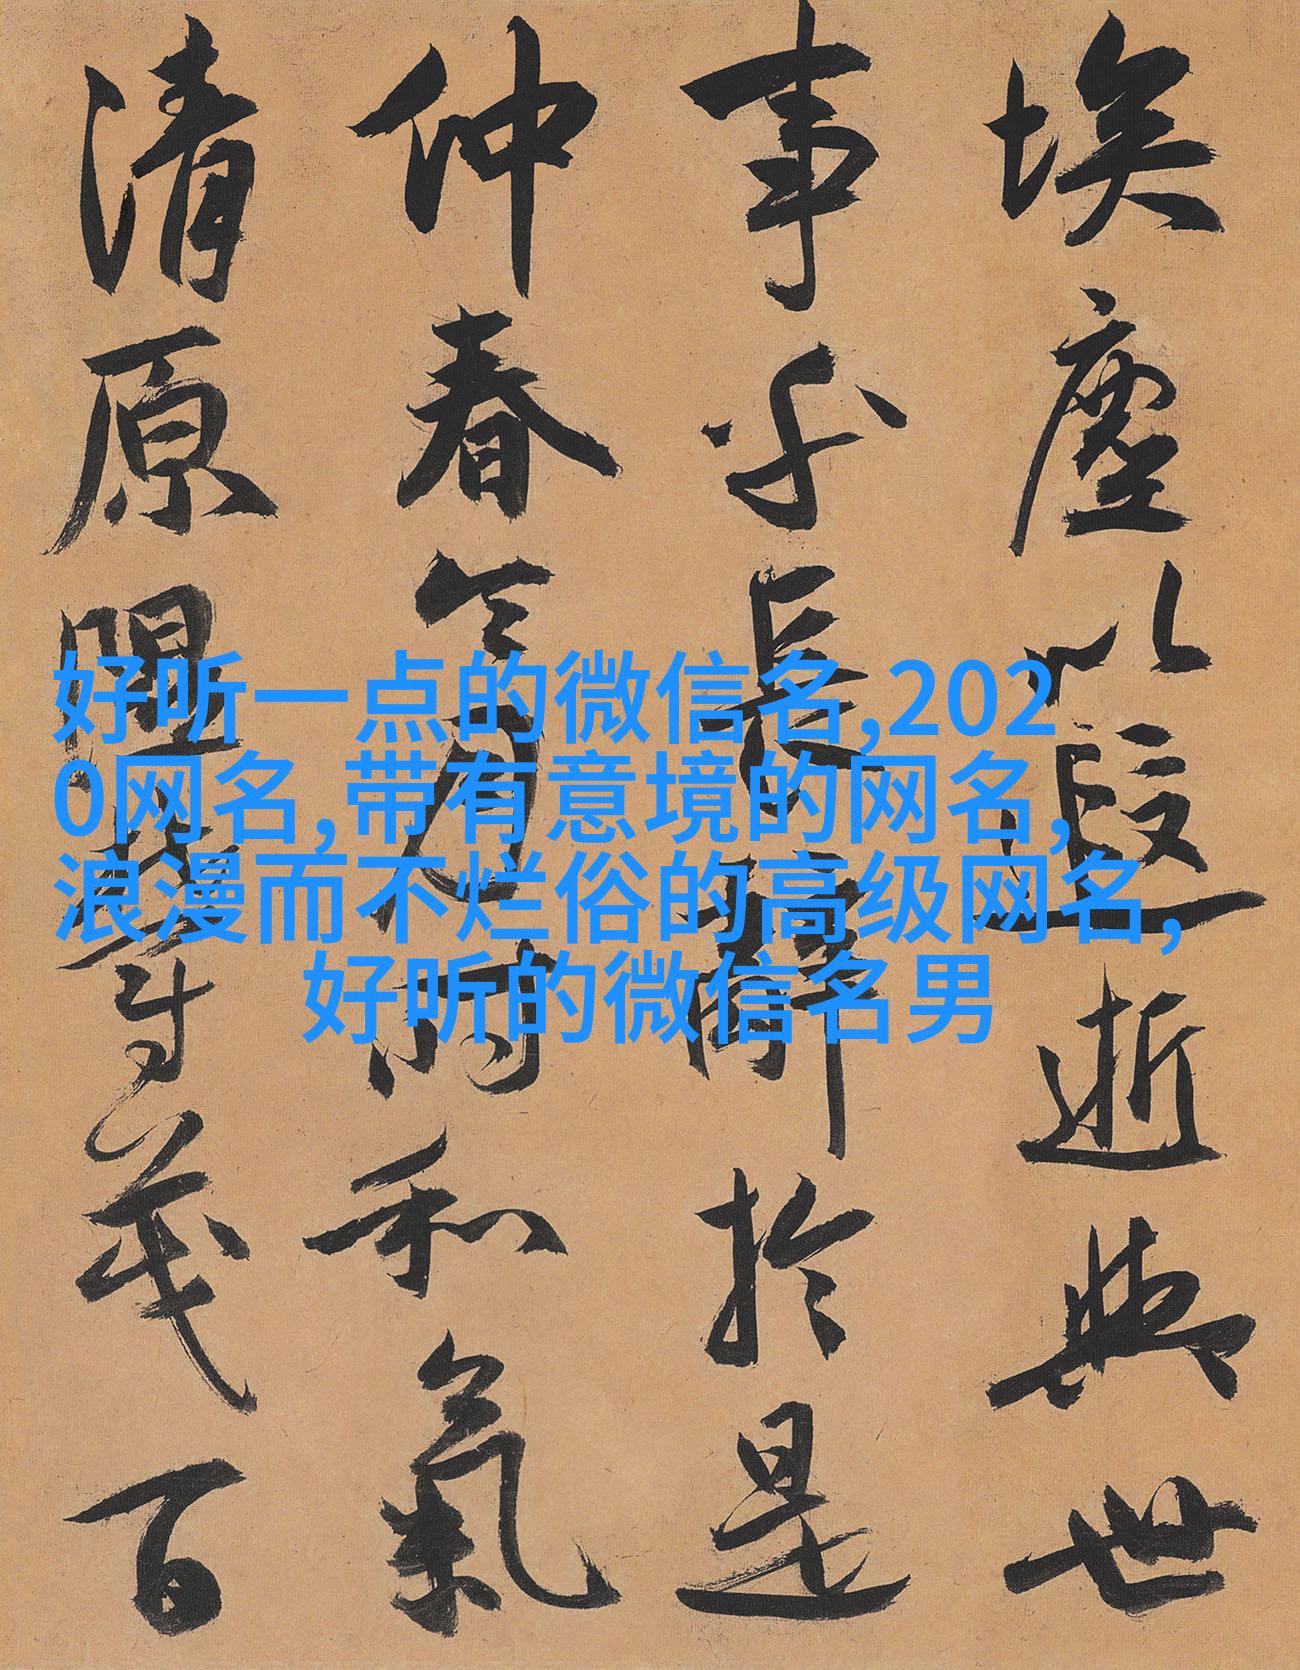 埃塵以遐逝與世
事乎長辭於是
仲春令月時和氣
清原隰鬱茂百
好听一点的微信名,202
0网名,带有意境的网名,
浪漫而不烂俗的高级网名,
好听的微信名男